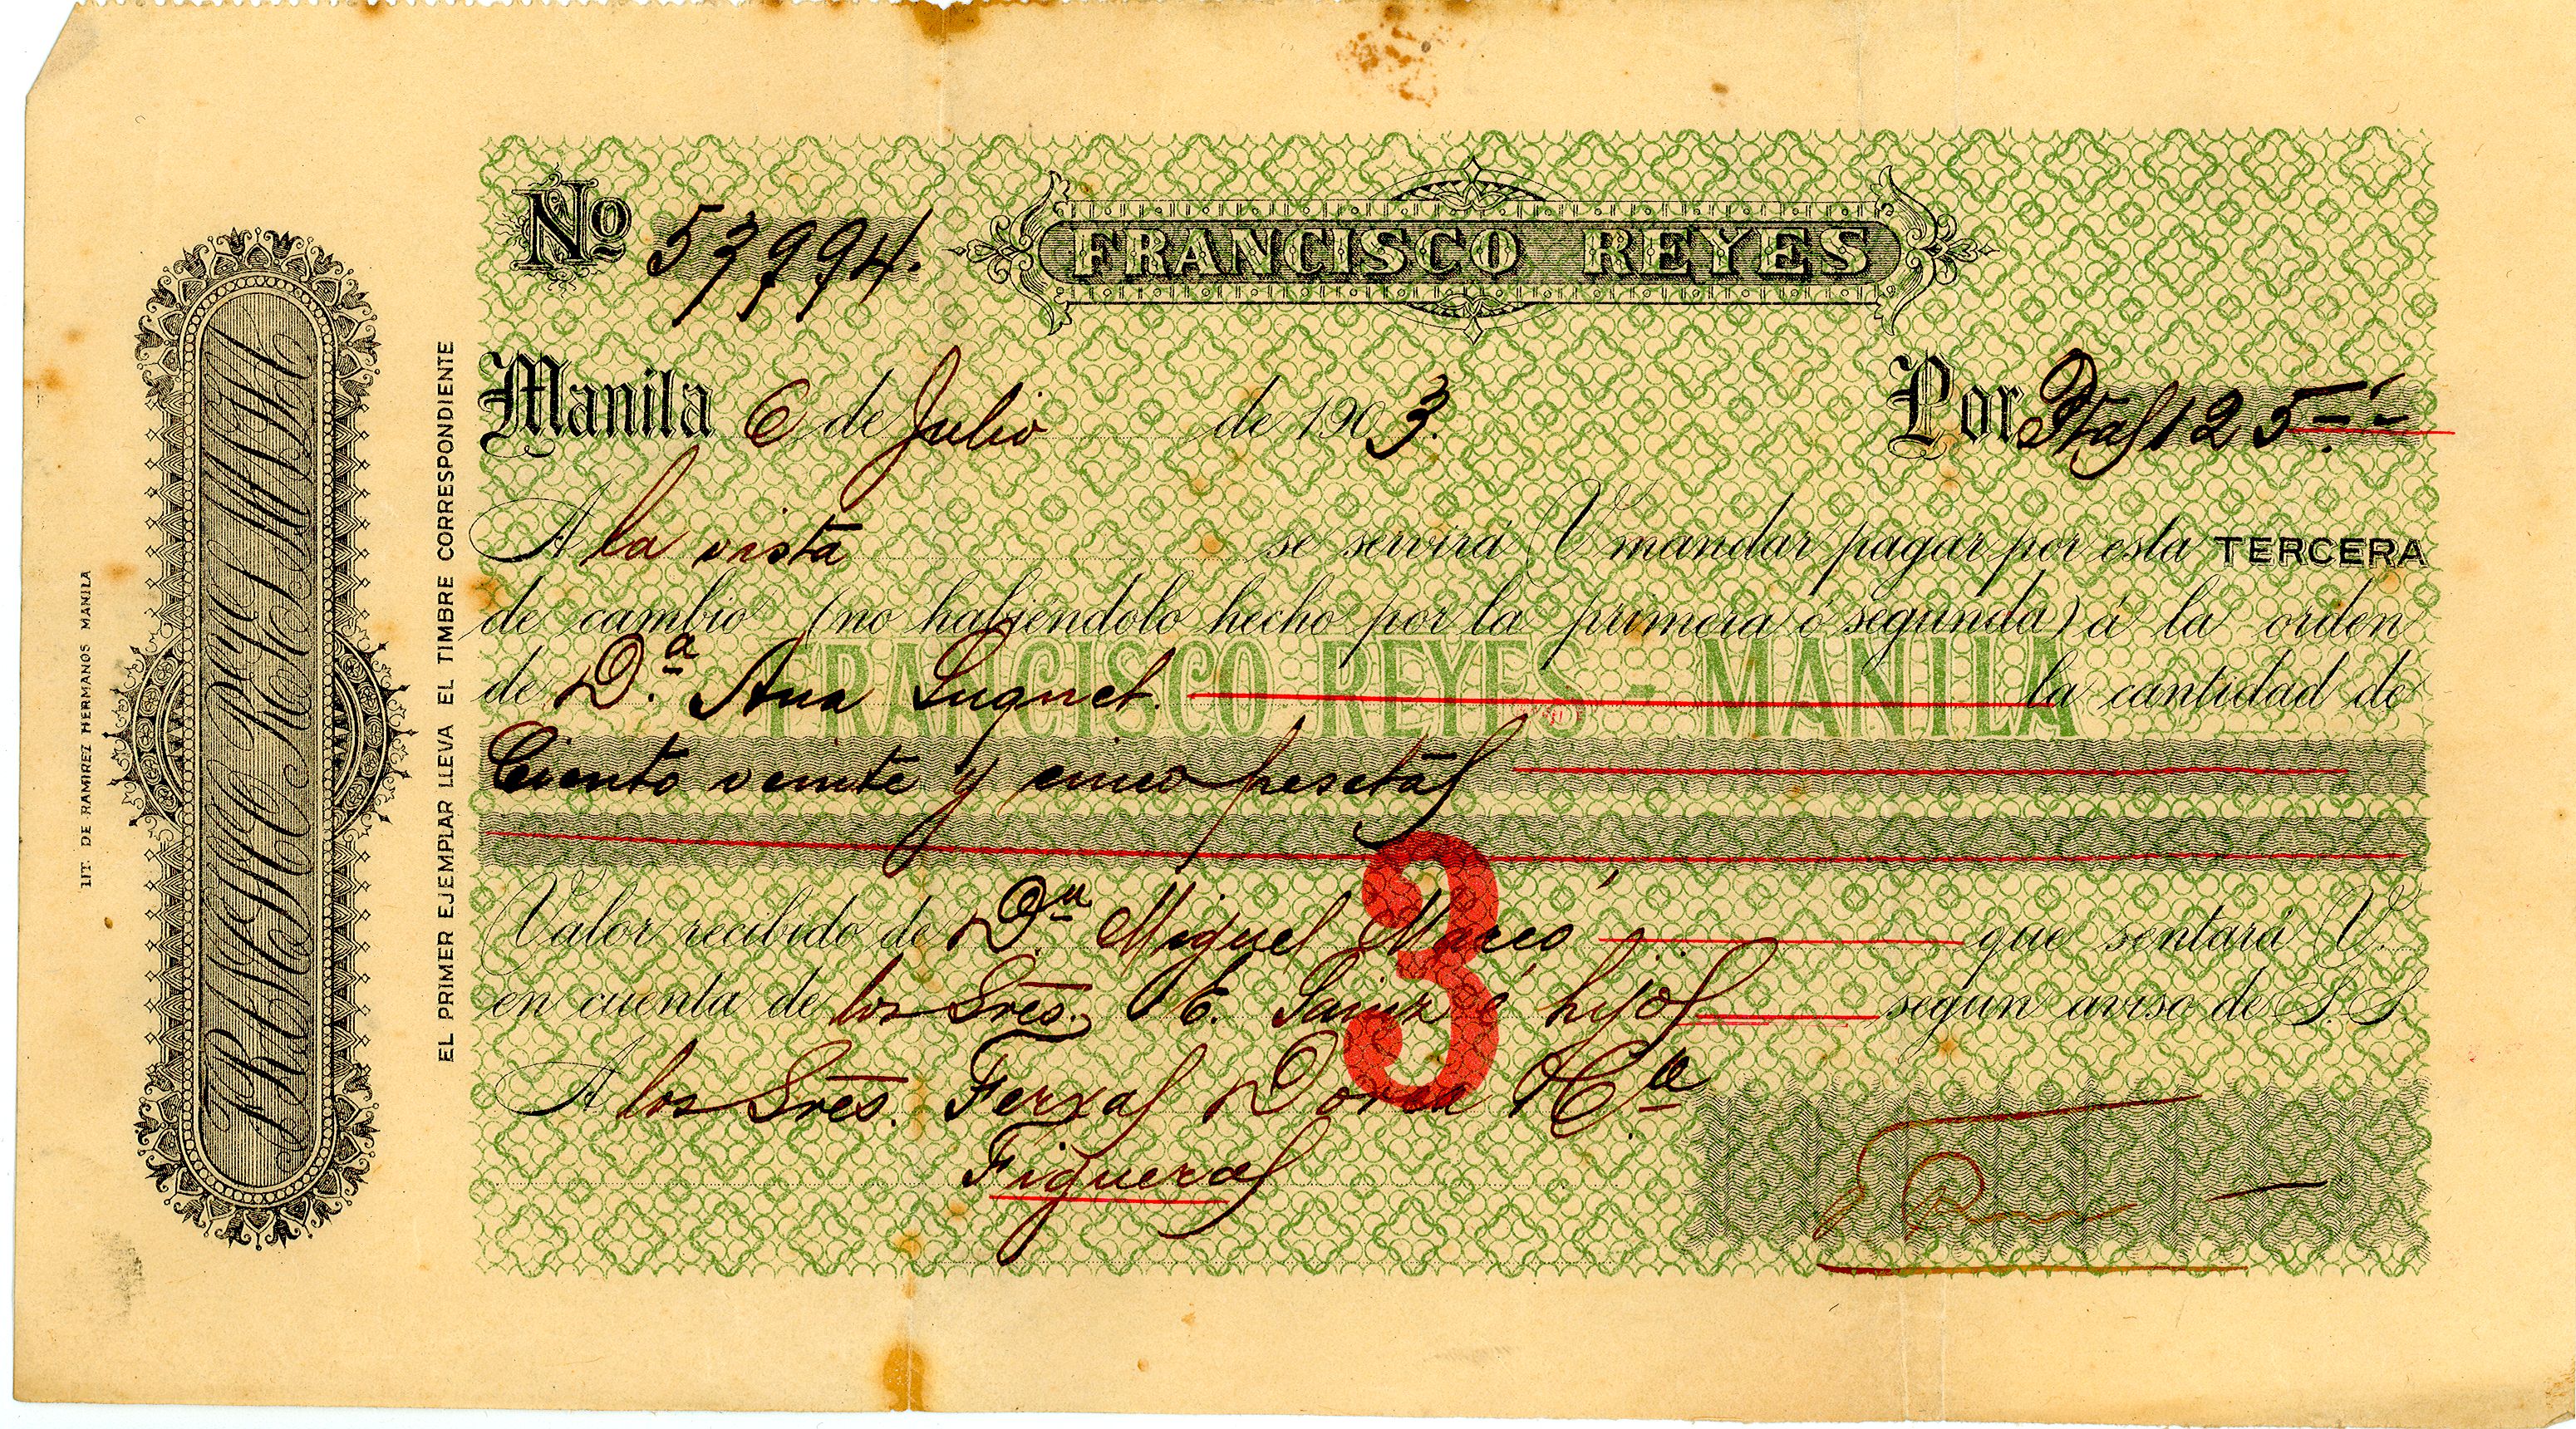 Nº 57994.
FRANCISCO REYES
Manila 6 de Julio de 1903.
Por Ptas 125-'-
A la vista se servirá V mandar pagar por esta TERCERA
de cambio (no habiéndolo hecho por la primera ó segunda) á la orden
de D.ª Ana Suquet. la cantidad de
FRANCISCO REYES - MANILA
Ciento veinte y cinco pesetas
3
Valor recibido de Dn. Miguel que sentará V.
en cuenta de los Sres. E. Sainz é hijos segun aviso de S. S.
A los Sres. Cia
Figueras
FRANCISCO REYES MANILA
EL PRIMER EJEMPLAR LLEVA EL TIMBRE CORRESPONDIENTE
LIT. DE RAMIREZ HERMANOS MANILA